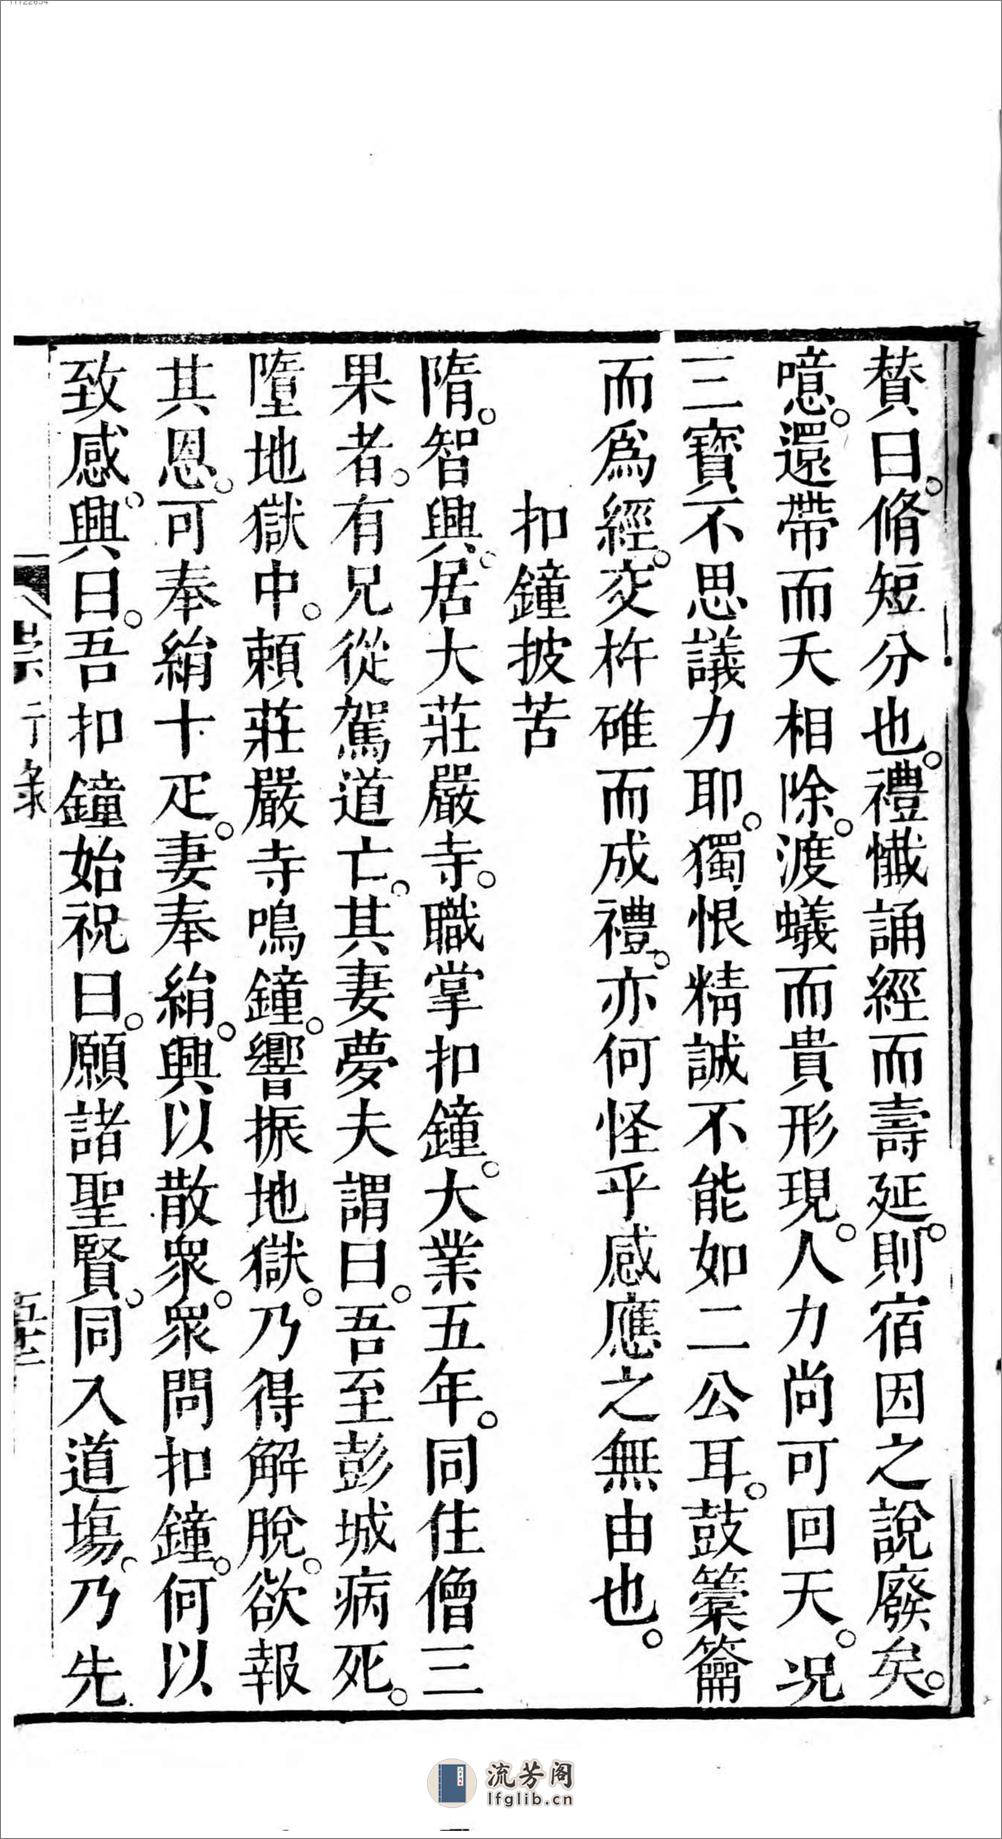 贊曰。脩短分也。禮懺誦經而壽延。則宿因之說廢矣。
噫。還帶而夭相除。渡蟻而貴形現。人力尚可回天。况
三寳不思議力耶。獨恨精誠不能如二公耳。鼓籥
而爲經。交杵碓而成禮。亦何怪乎感應之無由也。
扣鐘拔苦
隋。智興。居大莊嚴寺。職掌扣鐘。大業五年。同住僧三
果者。有兄從駕道亡。其妻夢夫謂曰。吾至彭城病死。
墮地獄中。賴莊嚴寺鳴鐘。響振地獄。乃得解脫。欲報
其恩。可奉絹十疋。妻奉絹。興以散衆。衆問扣鐘。何以
致感。興曰。吾扣鐘始祝曰。願諸聖賢。同入道塲。乃先
行錄
五十二
流芳阁
lfglib.cn